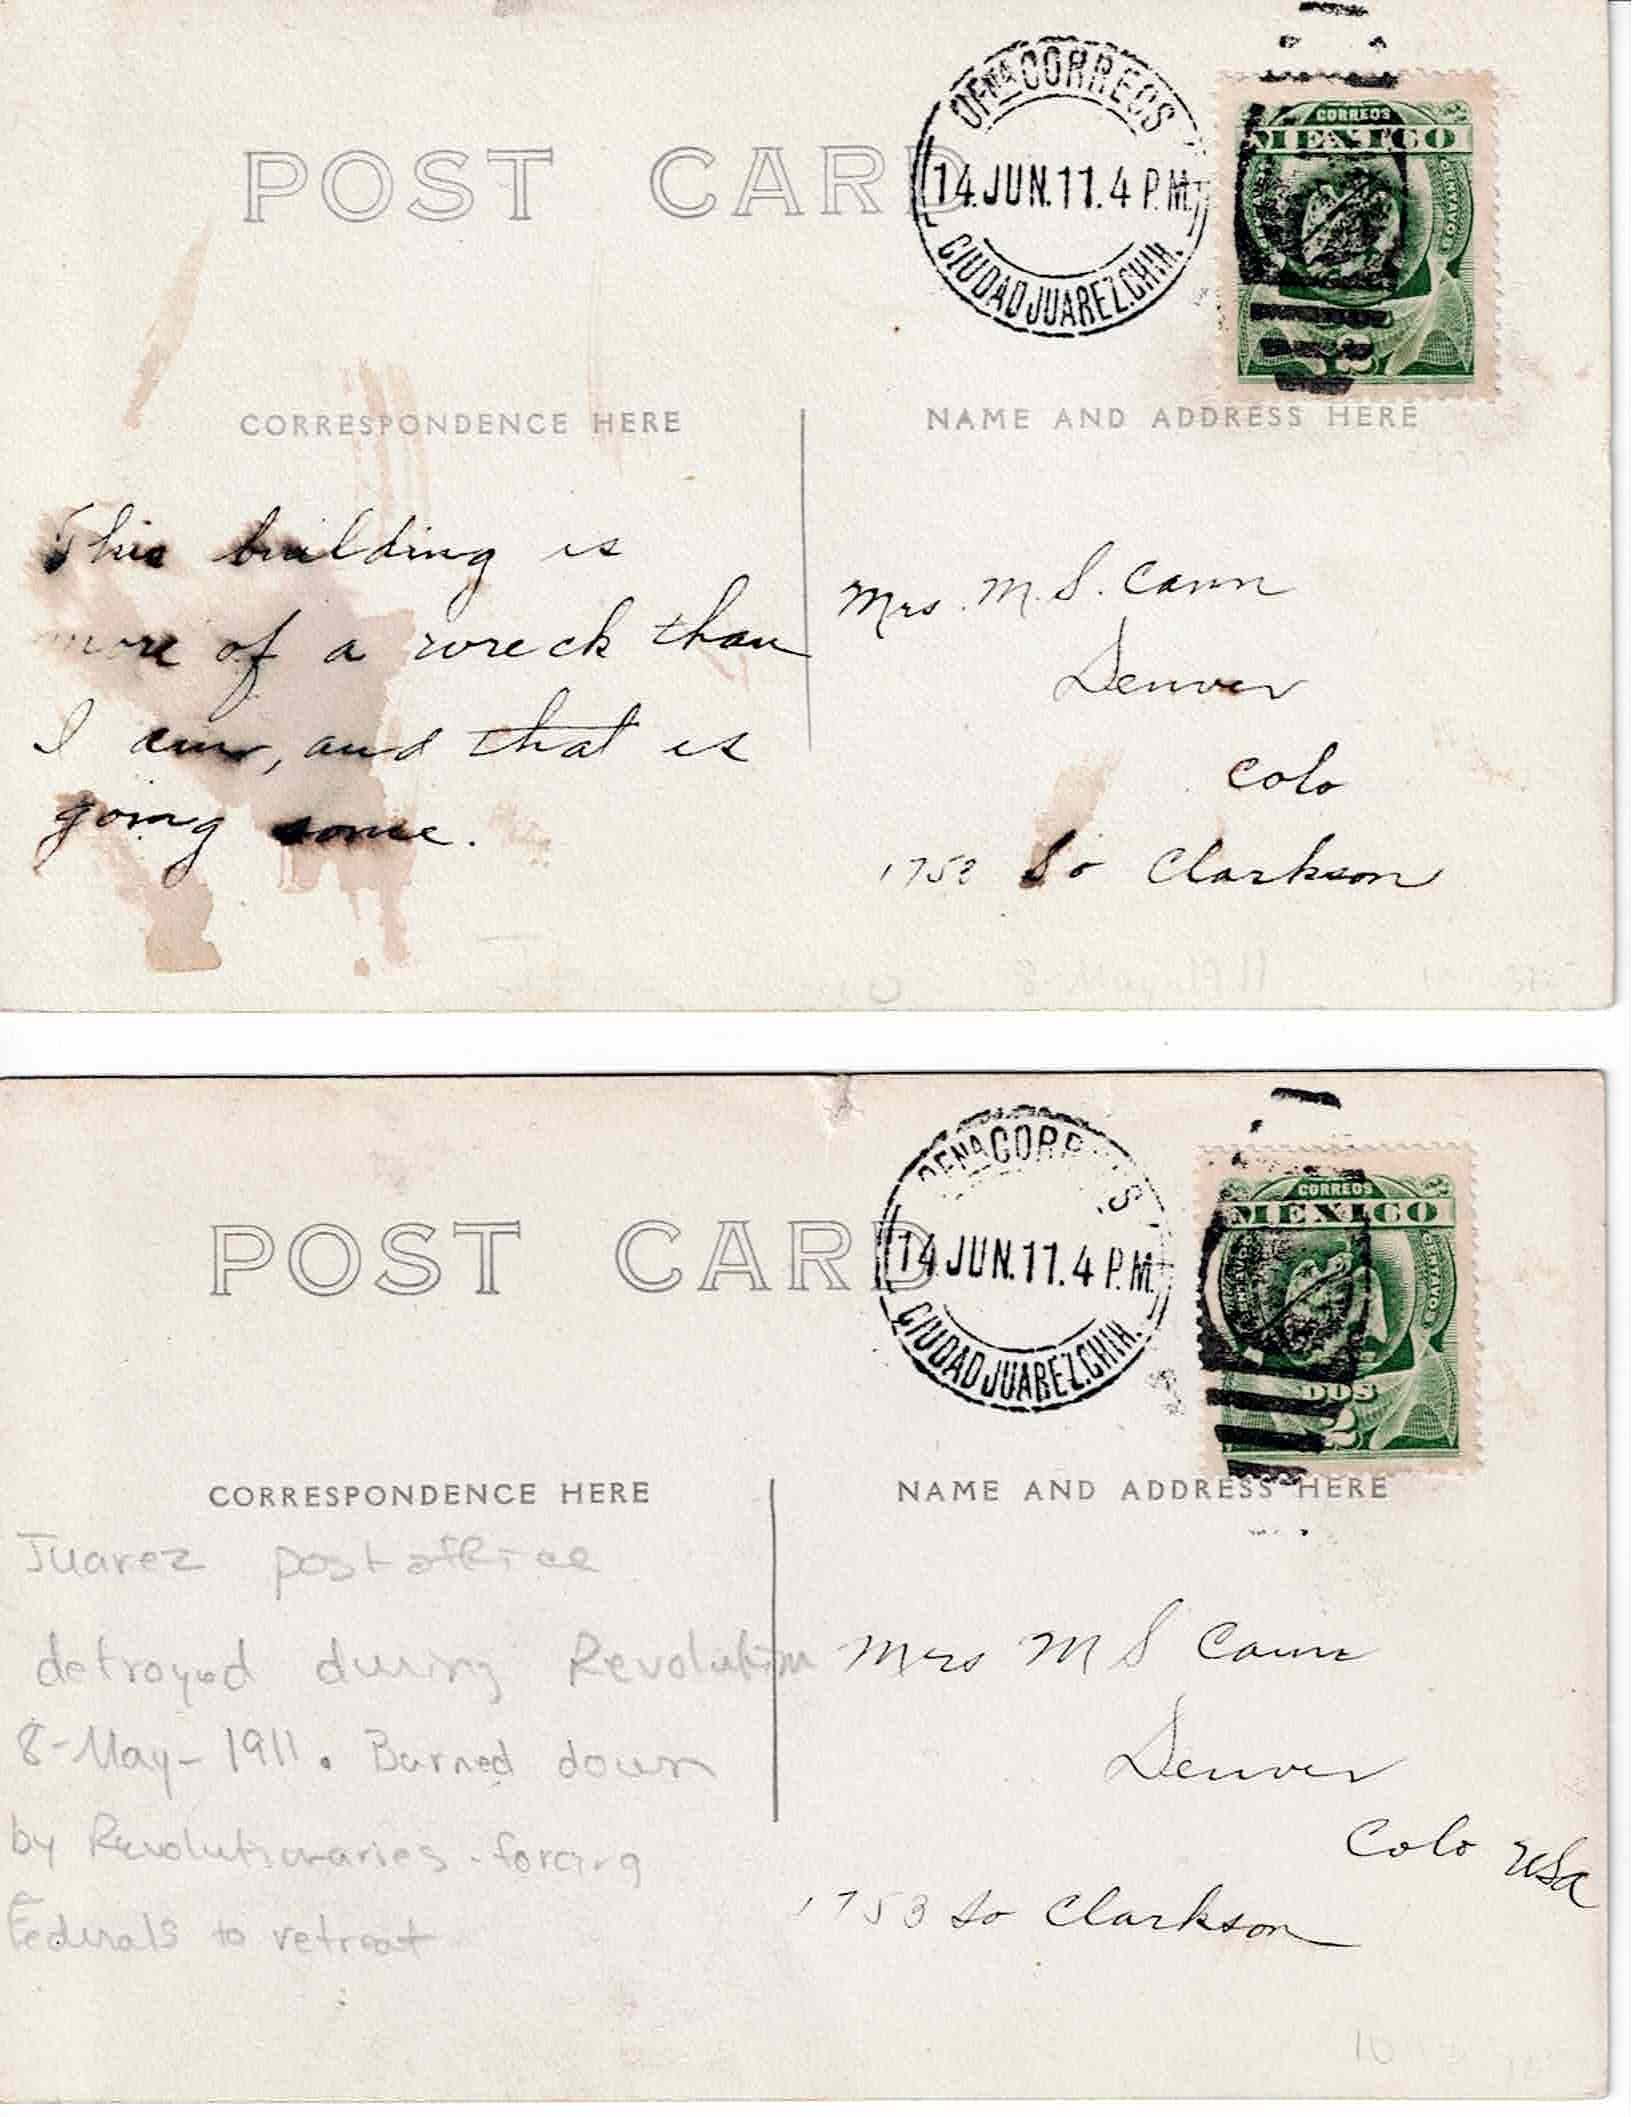 OFNA CORREOS
14.JUN.11.4 P.M.
CIUDAD JUAREZ.CHIH.
CORREOS
MEXICO
CENTAVOS
2
POST CARD
CORRESPONDENCE HERE
NAME AND ADDRESS HERE
This building is
more of a wreck than
I am, and that is
going some.
Mrs. M. S. Cann
Denver
Colo
1753 So Clarkson
8-May-1911
OFNA CORREOS
14 JUN.11.4 P.M.
CIUDAD JUAREZ.CHIH.
CORREOS
MEXICO
CENTAVOS
CENTAVOS
DOS
2
POST CARD
CORRESPONDENCE HERE
NAME AND ADDRESS HERE
Juarez post office
detroyed during Revolution
8-May-1911. Burned down
by Revolutionaries - forcing
Federals to retreat
Mrs M S Cann
Denver
Colo USA
1753 So Clarkson
10